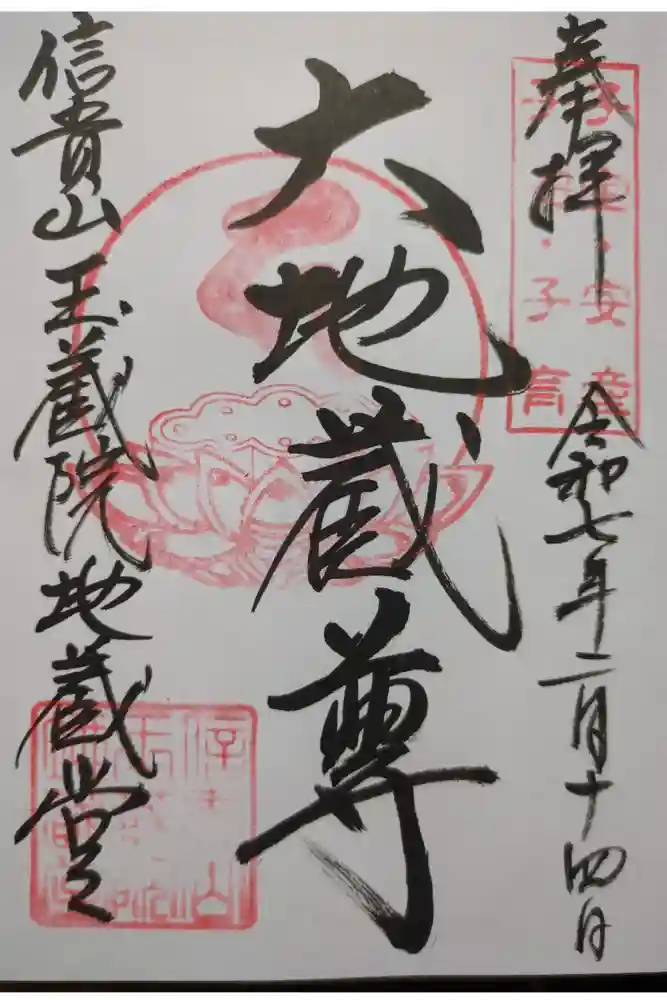 奉拝
安産
子育
令和七年二月十四日
大地蔵尊
信貴山玉蔵院地蔵堂
信貴山
玉蔵院